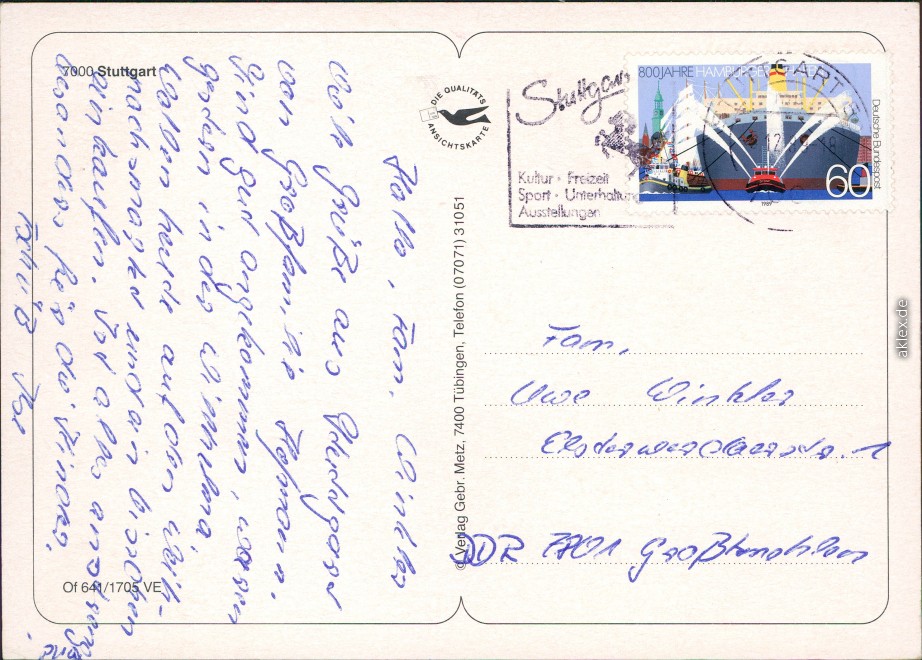 7000 Stuttgart
DIE QUALITÄTS
ANSICHTSKARTE
Hallo, Fam. Winkler
Viele Grüße aus Stuttgart
von Großfamilie
Sind gut angekommen, waren
gestern in der Wilhelma,
wollen heute auf den Weih-
nachtsmarkt und ein bißchen
einkaufen. Ist alles
besonders für die Kinder,
Tschüß
Of 641/1705 VE
© Verlag Gebr. Metz, 7400 Tübingen, Telefon (07071) 31051
Stuttgart
Kultur · Freizeit
Sport · Unterhaltung
Ausstellungen
STUTTGART
800 JAHRE HAMBURGER HAFEN
Deutsche Bundespost
60
1989
Fam.
Uwe Winkler
Elsterwerdaerstr. 1
DDR 7701 Großkmehlen
aklex.de